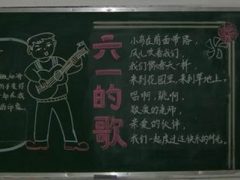 六一的歌
小鸟在前面带路,
风儿吹着我们,
我们像春天一样,
来到花园里,来到草地上。
唱啊,跳啊,
敬爱的老师,
亲爱的伙伴,
我们一起度过这快乐的时光。